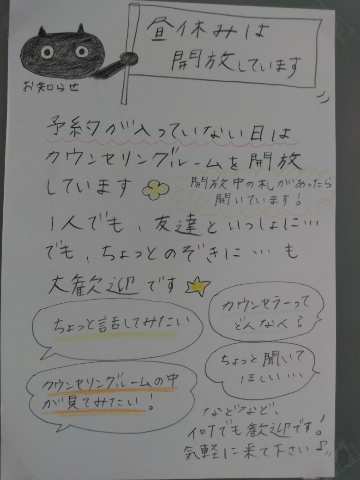 昼休みは
開放しています
お知らせ
予約が入っていない日は
カウンセリングルームを開放
しています
開放中の札があったら
開いています!
1人でも、友達といっしょに…
でも、ちょっとのぞきに…も
大歓迎です
ちょっと話してみたい
カウンセラーって
どんな人?
カウンセリングルームの中
が見てみたい!
ちょっと聞いて
ほしい…
などなど、
何でも歓迎です!
気軽に来て下さい♪